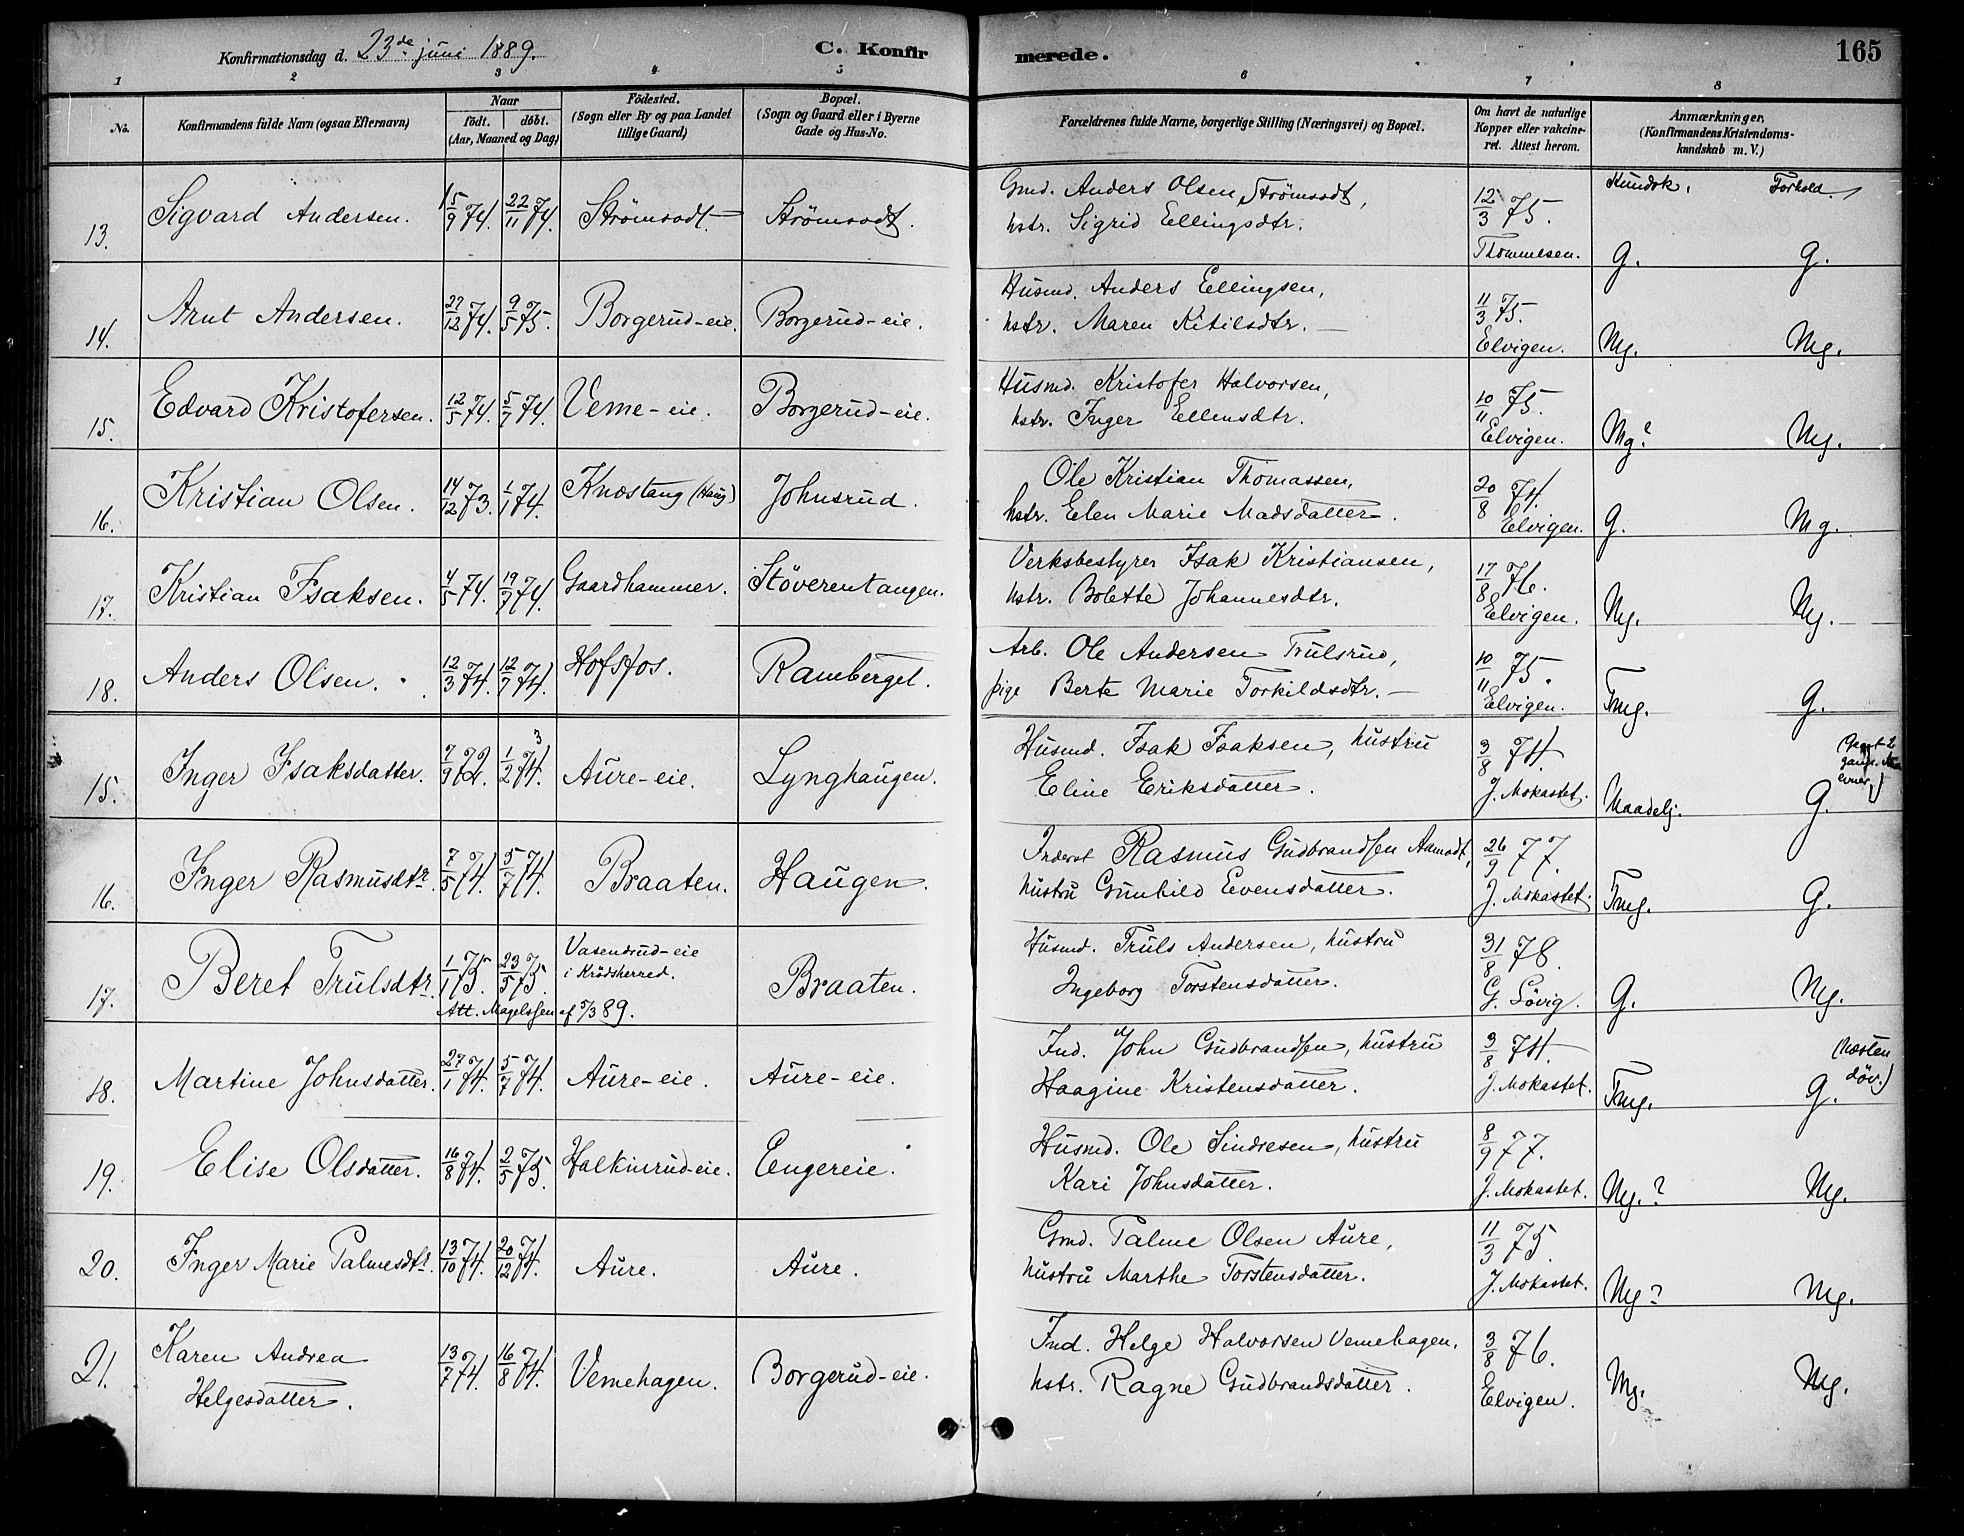 Konfirmationsdag d. 23de juni 1889.
C. Konfirmerede.
165
1 2 3 4 5 6 7 8
No.
Konfirmandens fulde Navn (ogsaa Efternavn)
Naar
født. døbt.
(Aar, Maaned og Dag)
Födested.
(Sogn eller By og paa Landet
tillige Gaard)
Bopæl.
(Sogn og Gaard eller i Byerne
Gade og Hus-No.
Forældrenes fulde Navne, borgerlige Stilling (Næringsvei) og Bopæl.
Om havt de naturlige
Kopper eller vakcine-
ret. Attest herom.
Anmærkninger,
(Konfirmandens Kristendoms-
kundskab m. V.)
Kundsk. Forhold.
13. Sigvard Andersen. 15/9 74. 22/11 74. Strømsodt. Strømsodt.
Gmd. Anders Olsen, Strømsodt,
hstr. Sigrid Ellingsdtr.
12/3 75.
Thommesen. G. G.
14. Arnt Andersen. 27/12 74. 9/5 75. Borgerud-eie. Borgerud-eie.
Husmd. Anders Ellingsen,
hstr. Maren Kitilsdtr. —
11/3 75.
Elvigen. Mg. Mg.
15. Edvard Kristofersen. 12/5 74. 5/7 74. Veme-eie. Borgerud-eie.
Husmd. Kristofer Halvorsen,
hstr. Inger Ellensdtr.
10/11 75.
Elvigen. Mg? Mg.
16. Kristian Olsen. 14/12 73. 1/1 74. Knæstang (Haug) Johnsrud.
Ole Kristian Thomassen,
hstr. Elen Marie Madsdatter.
20/8 74.
Elvigen. G. Mg.
17. Kristian Isaksen. 4/5 74. 19/7 74. Gaardhammer. Støverentangen.
Verksbestyrer Isak Kristiansen,
hstr. Bolette Johannesdtr.
17/8 76.
Elvigen. Mg. Mg.
18. Anders Olsen. 12/3 74. 12/7 74. Hofsfos. Ramberget.
Arb. Ole Andersen Trulsrud,
pige Berte Marie Torkildsdtr. —
10/11 75.
Elvigen. Tmg. G.
15. Inger Isaksdatter. 7/9 72. 1/2 74. 3 Aure-eie. Lynghaugen.
Husmd. Isak Isaksen, hustru
Eline Eriksdatter.
3/8 74
J. Mokastet. Maadelj. G.
16. Inger Rasmusdtr. 7/5 74. 5/7 74. Braaten. Haugen.
Inderst Rasmus Gudbrandsen Aamodt,
hustru Gunhild Evensdatter.
26/9 77.
J. Mokastet. Tmg. G.
17. Beret Trulsdtr. 1/1 75. 23/5 75. Vasendrud-eie
i Krødsherred. Braaten.
Att. Magelssen af 5/3 89.
Husmd. Truls Andersen, hustru
Ingeborg Torstensdatter.
31/8 78.
G. Løvig. G. Mg.
18. Martine Johnsdatter. 27/1 74. 5/7 74. Aure-eie. Aure-eie.
Ind. John Gudbrandsen, hustru
Haagine Kristensdatter.
3/8 74
J. Mokastet. Tmg. G. (Næsten
døv.)
19. Elise Olsdatter. 16/8 74. 2/5 75. Halkinrud-eie. Eengereie.
Husmd. Ole Sindresen, hustru
Kari Johnsdatter.
8/9 77.
J. Mokastet. Mg.? Mg.
20. Inger Marie Palmesdtr. 13/10 74. 20/12 74. Aure. Aure.
Gmd. Palme Olsen Aure,
hustru Marthe Torstensdatter.
11/3 75.
J. Mokastet. Mg? Mg.
21. Karen Andrea
Helgesdatter. 13/7 74. 16/8 74. Vemehagen. Borgerud-eie.
Ind. Helge Halvorsen Vemehagen.
hstr. Ragne Gudbrandsdatter.
3/8 76.
Elvigen. Mg. Mg.